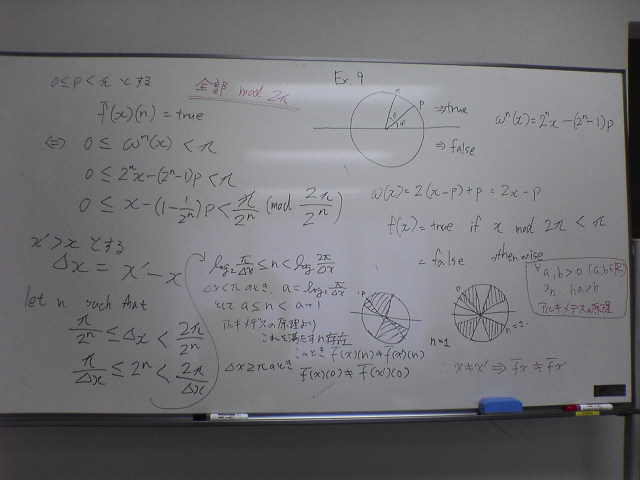 0≤p<π とする
全部 mod 2π
f̄(x)(n) = true
⇔ 0 ≤ ωⁿ(x) < π
0 ≤ 2ⁿx-(2ⁿ-1)p < π
0 ≤ x-(1-1/2ⁿ)p < π/2ⁿ (mod 2π/2ⁿ)
x'>x とする
Δx = x'-x
let n such that
π/2ⁿ ≤ Δx < 2π/2ⁿ
π/Δx ≤ 2ⁿ < 2π/Δx
log₂ π/Δx ≤ n < log 2π/Δx
Δx<πのとき, a = log₂ π/Δx
として a ≤ n < a+1
アルキメデスの原理より
これを満たすn存在
このとき f̄(x)(n) ≠ f̄(x')(n)
Δx≥πのとき f̄(x)(0) ≠ f̄(x')(0)
Ex. 9
p
⇒ true
⇒ false
ωⁿ(x) = 2ⁿx-(2ⁿ-1)p
ω(x) = 2(x-p)+p = 2x-p
f(x) = true if x mod 2π < π
= false otherwise
∀a,b>0 (a,b∈R)
∃n na>b
アルキメデスの原理
p
n=1
n=1.
∴ x≠x' ⇒ f̄x ≠ f̄x'